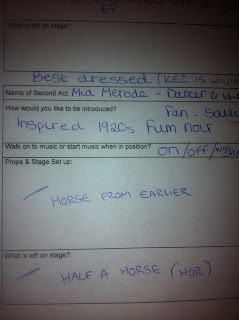 bf
What is left on stage?
Best dressed (KEZ IS WINN
Name of Second Act: Mia Merode - Dancer &
How would you like to be introduced? Fan -
Inspired 1920s Film Noir
Walk on to music or start music when in position? ON/OFF/
Props & Stage Set up:
HORSE FROM EARLIER
What is left on stage?
HALF A HORSE (HOR)